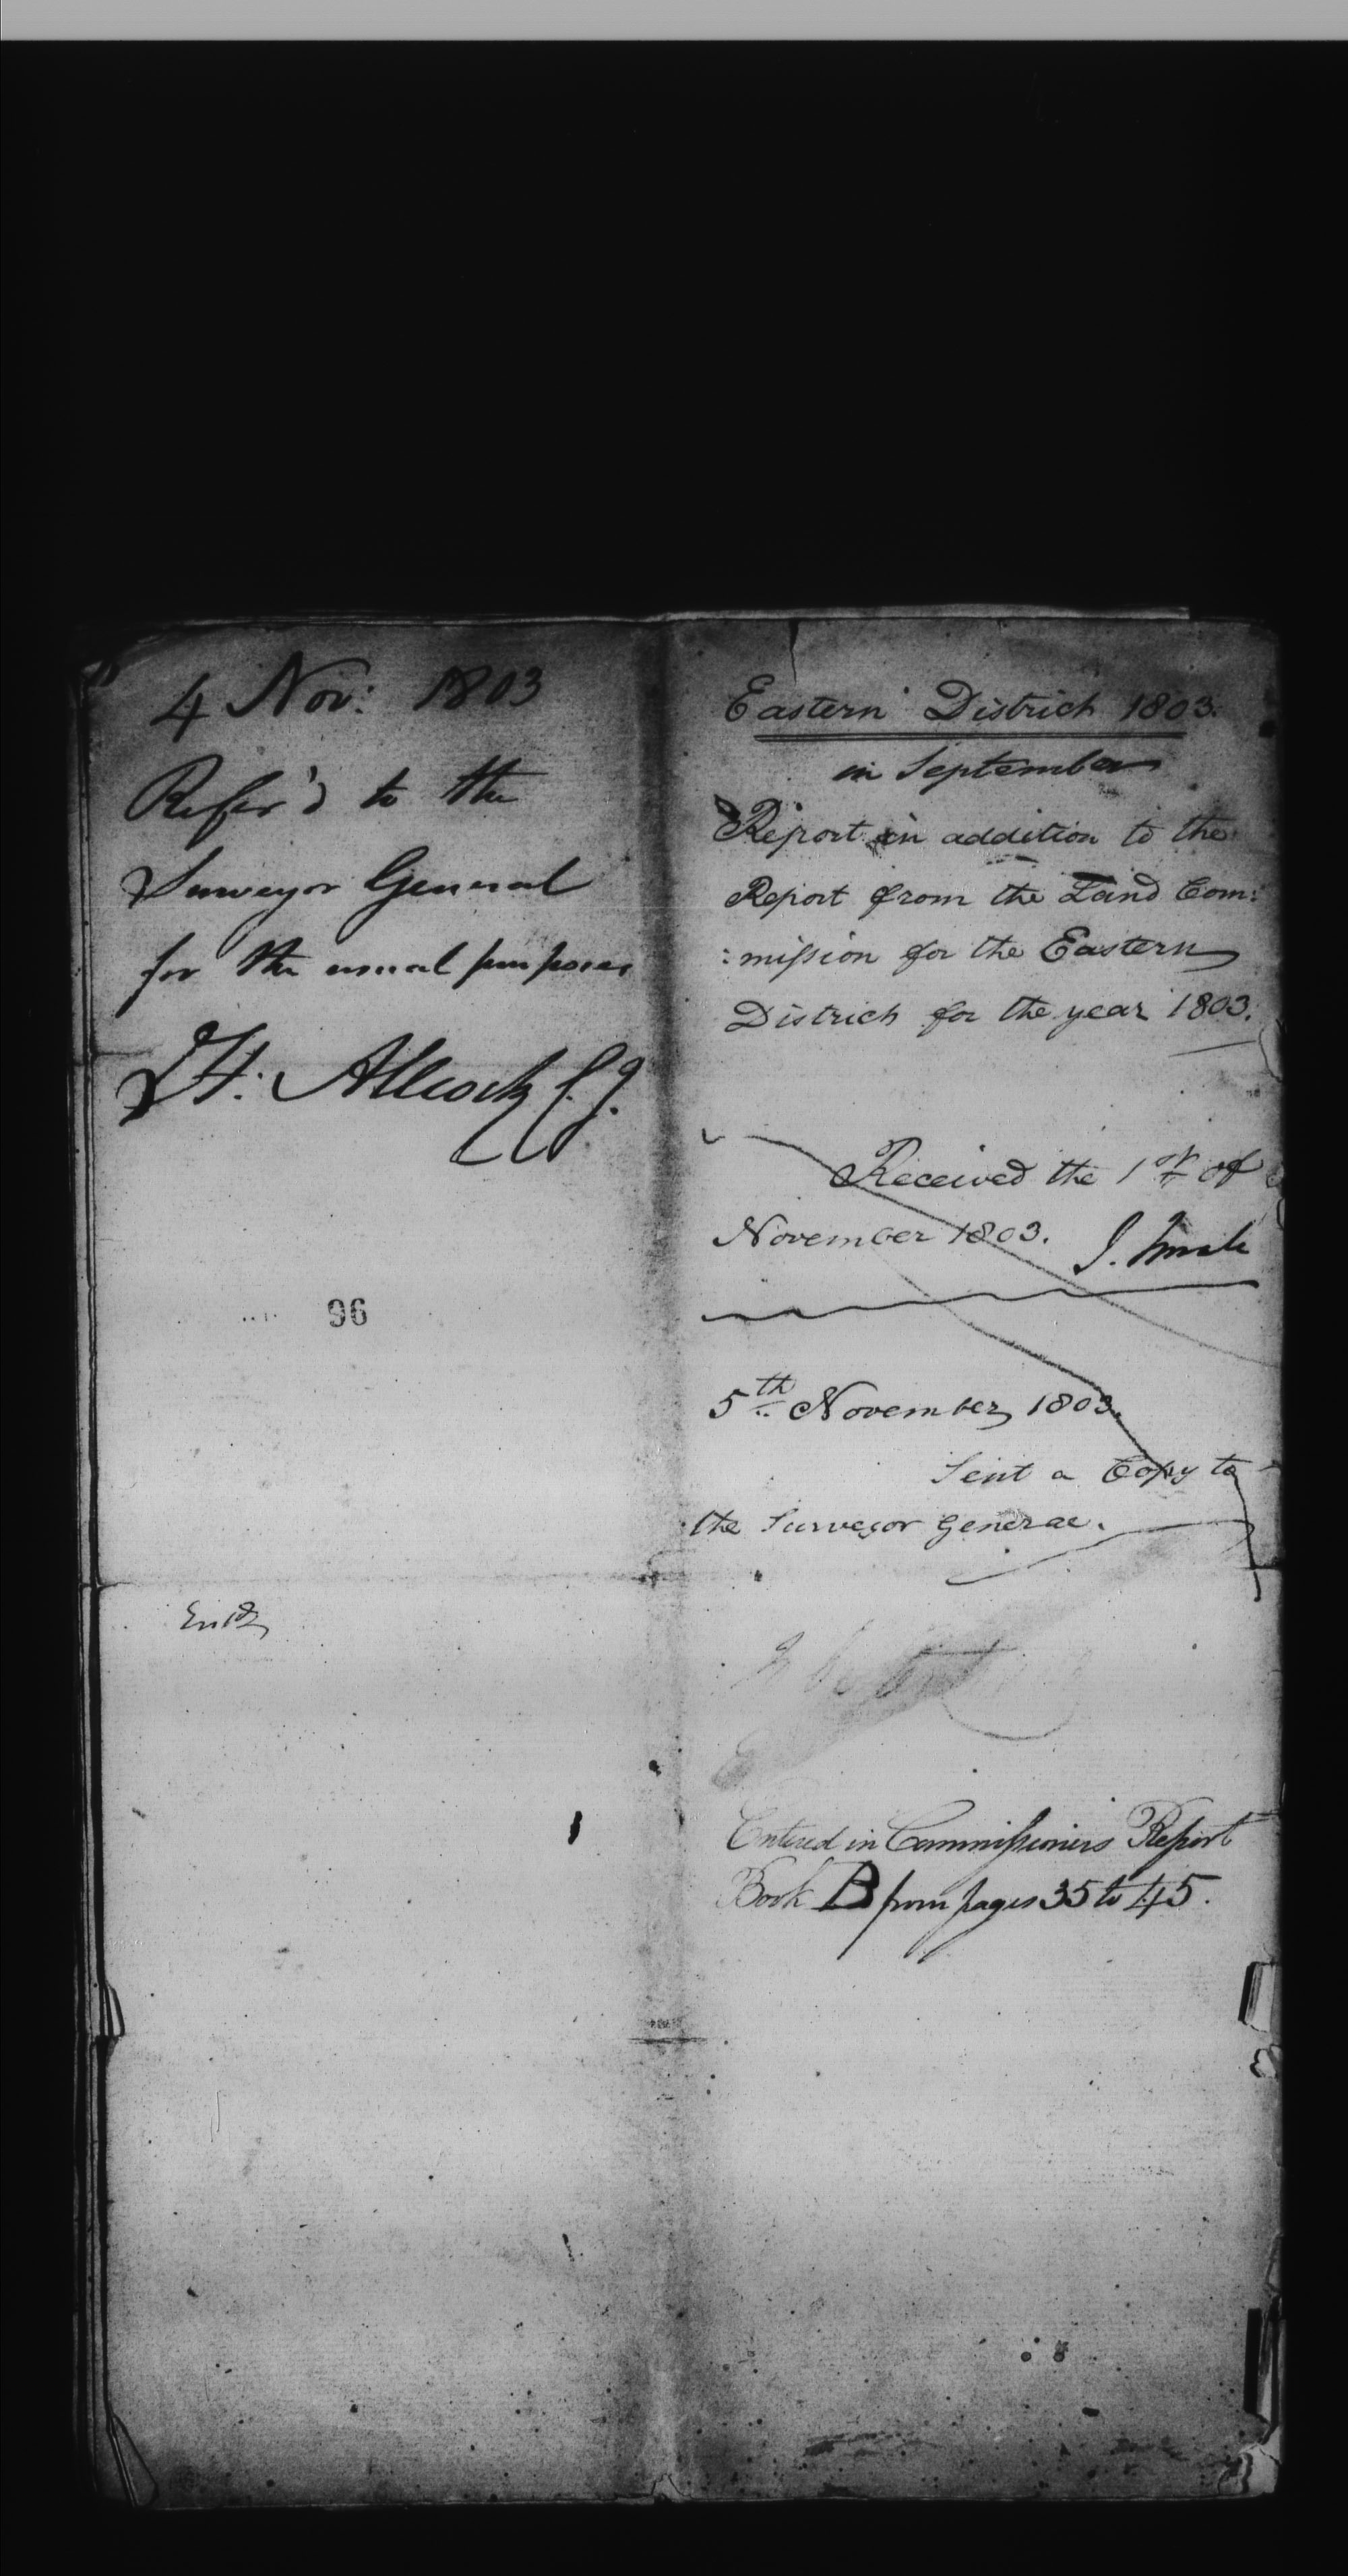 4 Nov: 1803
Refer'd to the
Surveyor General
for the usual purposes
H: Allcock C.J.
96
Entd
Eastern District 1803.
in September
Report in addition to the
Report from the Land Com:
:mission for the Eastern
District for the year 1803.
Received the 1st of
November 1803. J. Small
5th November 1803.
Sent a Copy to
the Surveyor General.
Entered in Commissioners Report
Book B from pages 35 to 45.